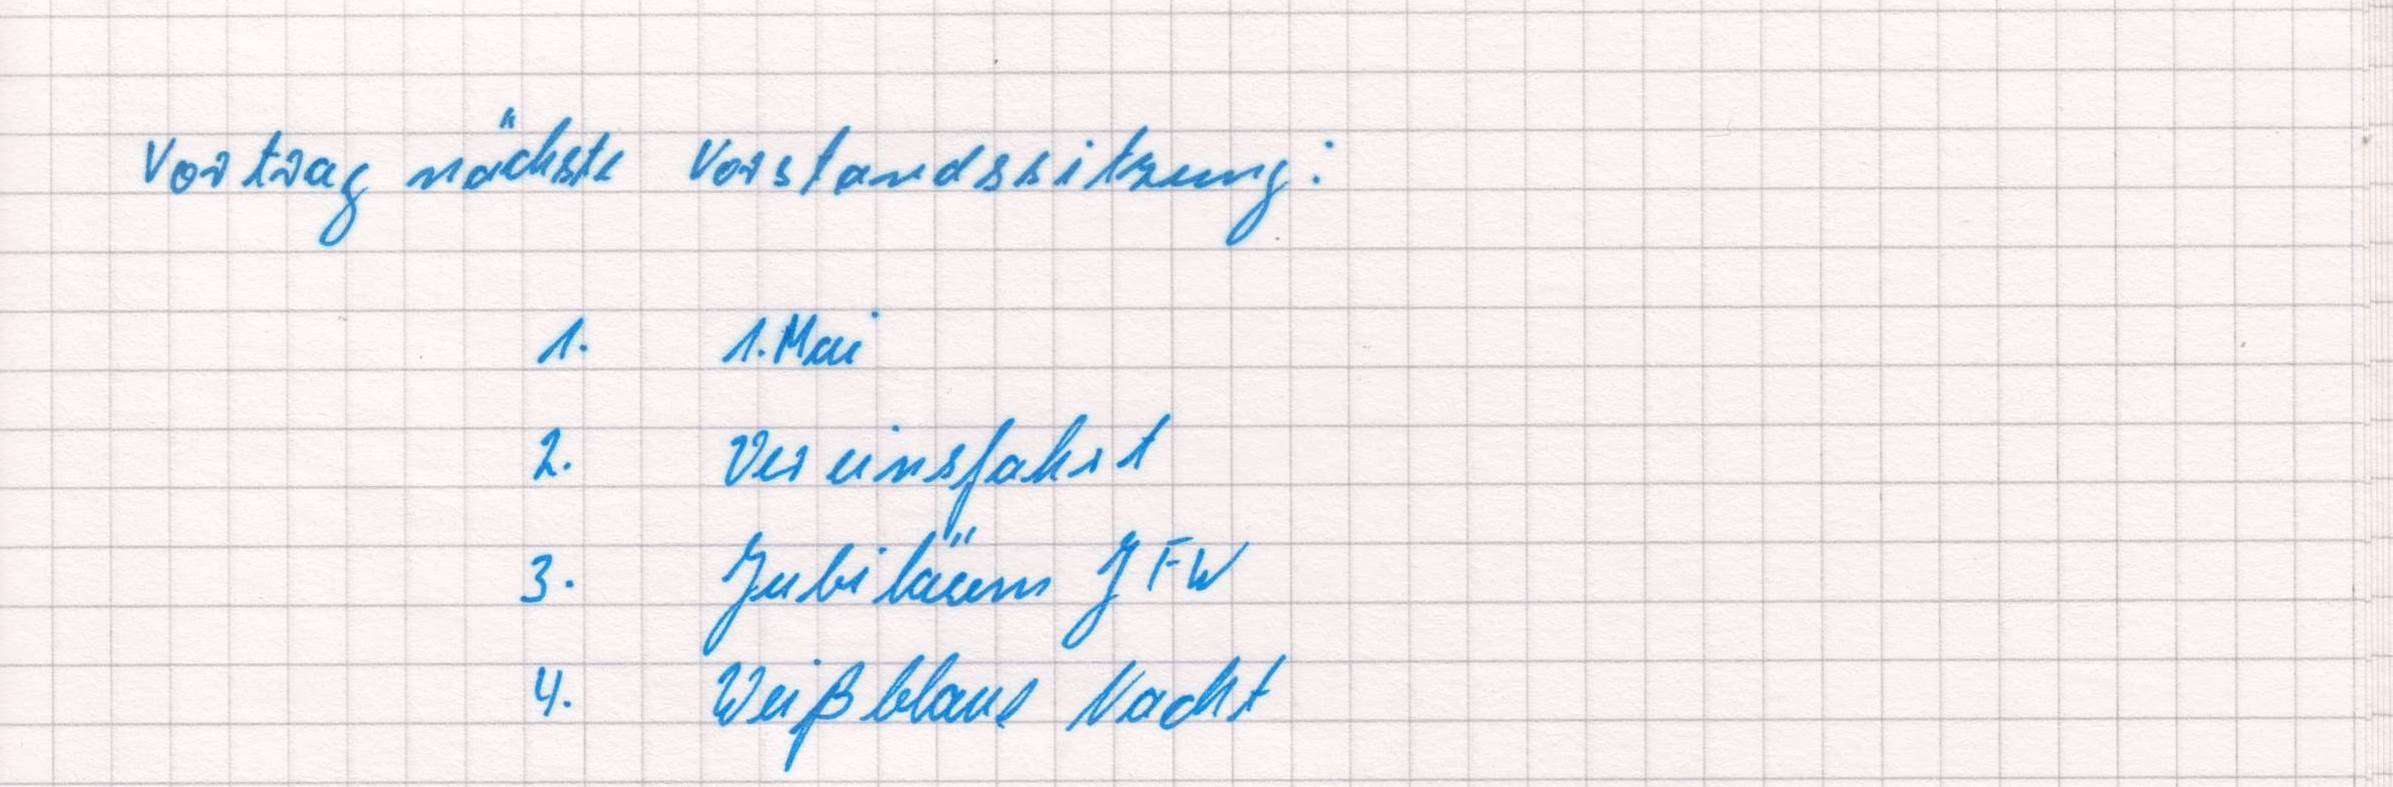 Vortrag nächste Vorstandssitzung:
1. 1. Mai
2. Vereinsfahrt
3. Jubiläum JFW
4. Weißblaue Nacht